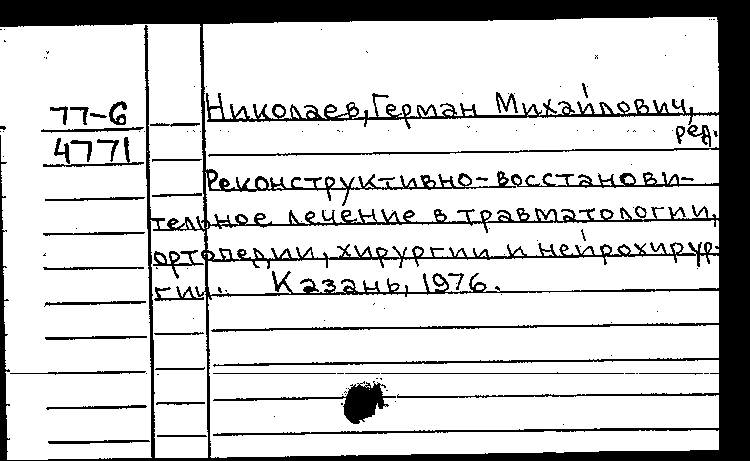 77-6
4771
Николаев, Герман Михайлович,
ред.
Реконструктивно-восстанови-
тельное лечение в травматологии,
ортопедии, хирургии и нейрохирур-
гии. Казань, 1976.